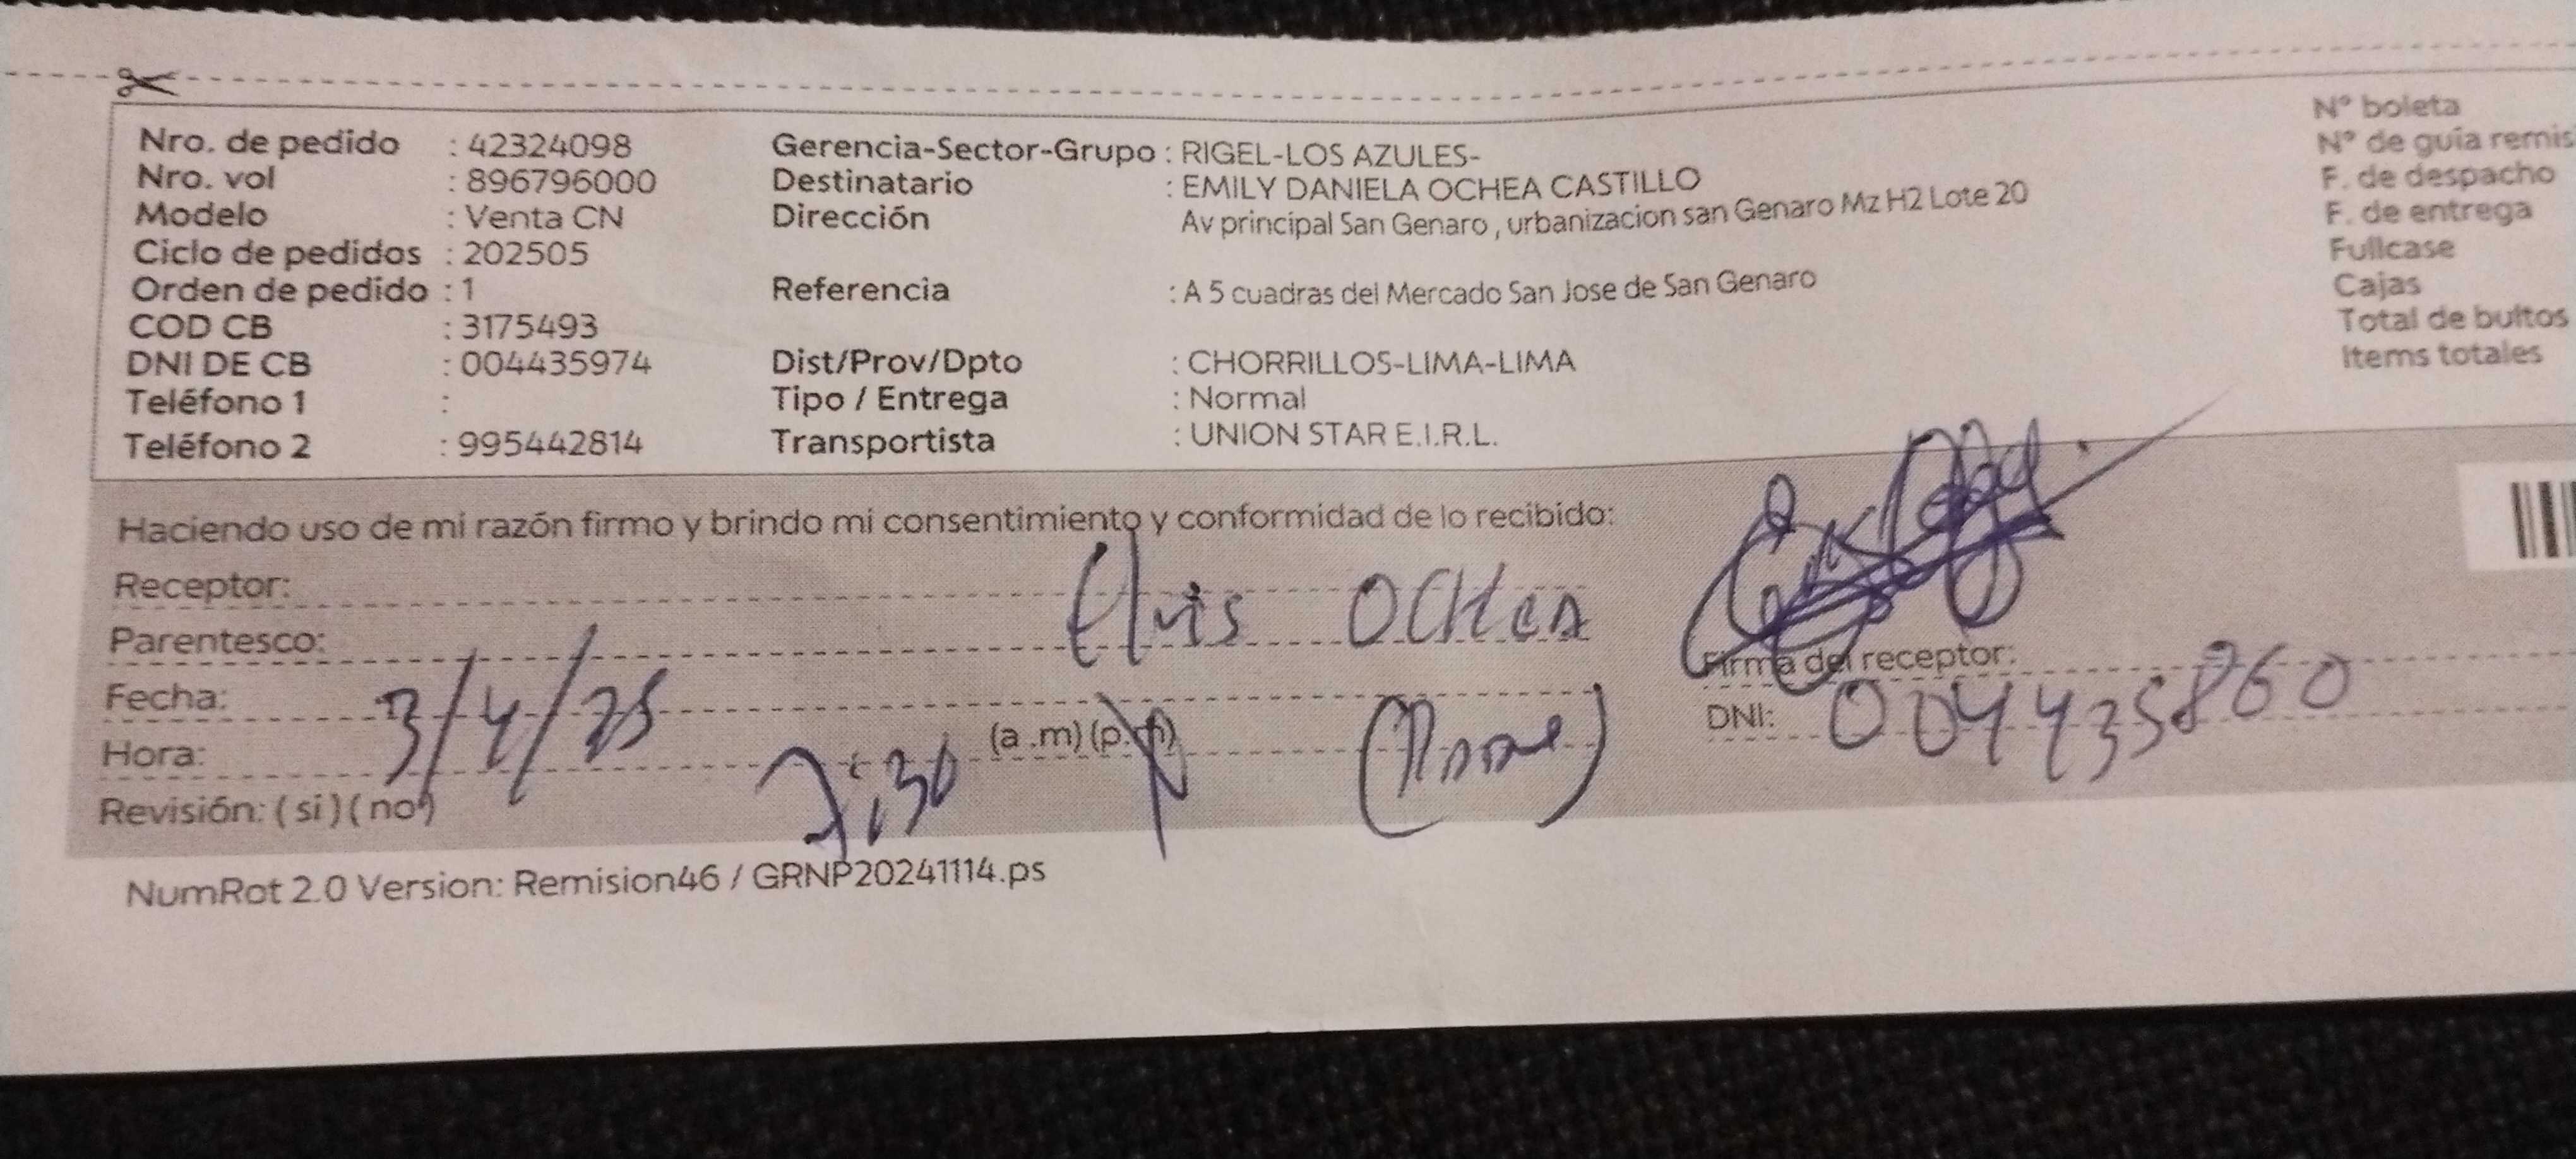 Nro. de pedido : 42324098 Gerencia-Sector-Grupo : RIGEL-LOS AZULES- N° boleta
Nro. vol : 896796000 Destinatario : EMILY DANIELA OCHEA CASTILLO N° de guía remis
Modelo : Venta CN Dirección Av principal San Genaro , urbanizacion san Genaro Mz H2 Lote 20 F. de despacho
Ciclo de pedidos : 202505 F. de entrega
Orden de pedido : 1 Referencia : A 5 cuadras del Mercado San Jose de San Genaro Fullcase
COD CB : 3175493 Cajas
DNI DE CB : 004435974 Dist/Prov/Dpto : CHORRILLOS-LIMA-LIMA Total de bultos
Teléfono 1 : Tipo / Entrega : Normal Items totales
Teléfono 2 : 995442814 Transportista : UNION STAR E.I.R.L.
Haciendo uso de mi razón firmo y brindo mi consentimiento y conformidad de lo recibido:
Receptor: Elvis OCHEA
Parentesco: Firma del receptor:
Fecha: 3/4/25 DNI: 004435860
Hora: 7:30 (a .m) (p.m)
Revisión: ( si ) ( no )
NumRot 2.0 Version: Remision46 / GRNP20241114.ps